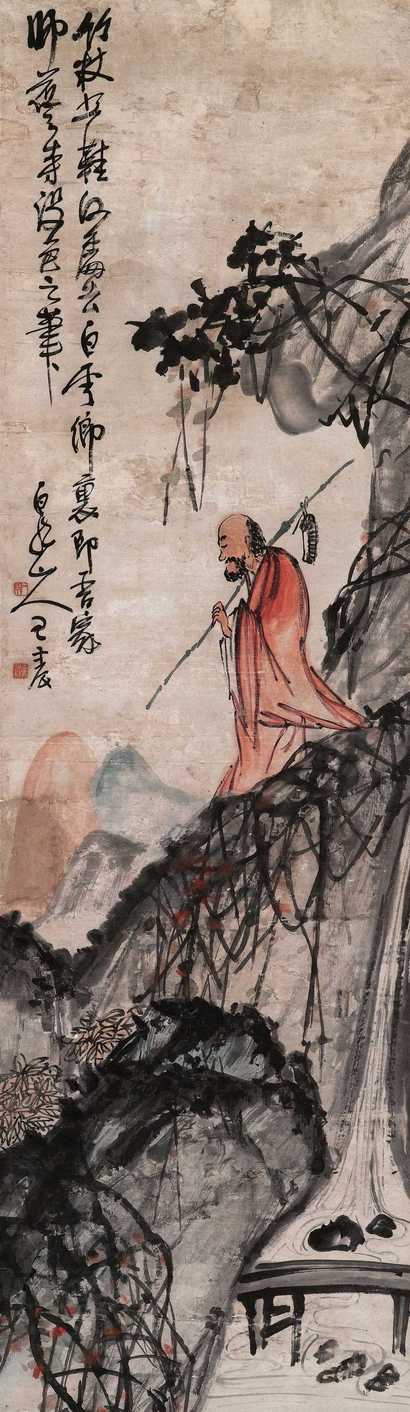 竹杖芒鞋何處去白雲鄉裏即吾家
師設色之筆
白龍山人王震